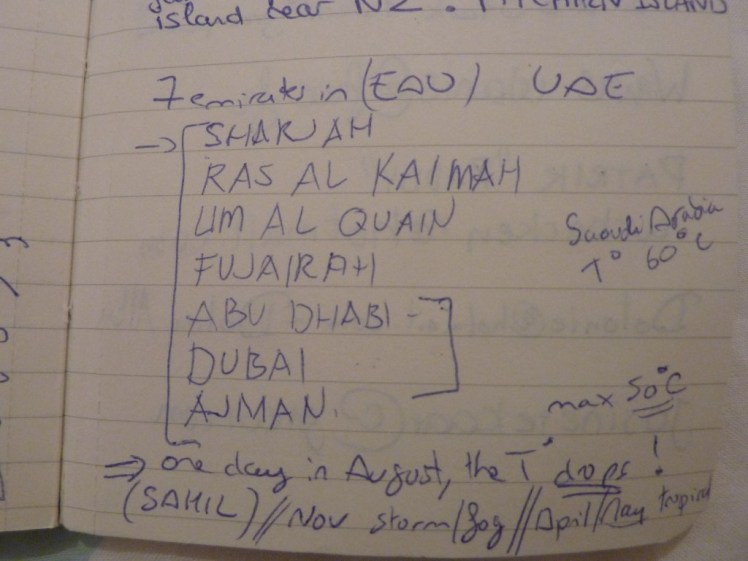 island near NZ : PITCAIRN ISLAND
7 emirates in (EAU) UAE
→ SHARJAH
RAS AL KAIMAH
UM AL QUAIN
FUJAIRAH
ABU DHABI
DUBAI
AJMAN.
Saoudi Arabia
T° 60°C
max 50°C
⇒ one day in August, the T° drops !
(SAHIL) // Nov storm/fog // April/May tropical